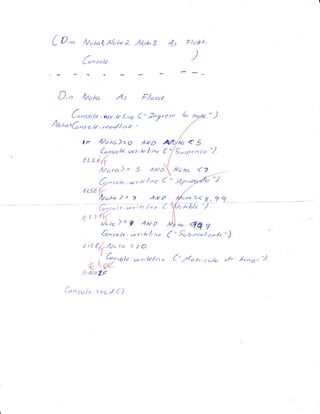 (Dim Nota1, Nota2, Nota3 As Float
Console )
Dim Nota As Float
Console.writeline ("Ingrese la nota")
Nota=Console.readline
IF Nota>=0 AND Nota<5
Console.writeline ("Suspenso").
ELSEif
Nota>=5 AND Nota <7
Console.writeline ("Aprobado").
ELSEif
Nota>=7 AND Nota<=8,99
Console.writeline ("Notable").
ELSEif
Nota>=9 AND Nota <9,9
Console.writeline ("Sobresaliente").
ELSEif Nota =10
Console.writeline ("Matricula de honor")
ELSE
ENDIF
Console.read()